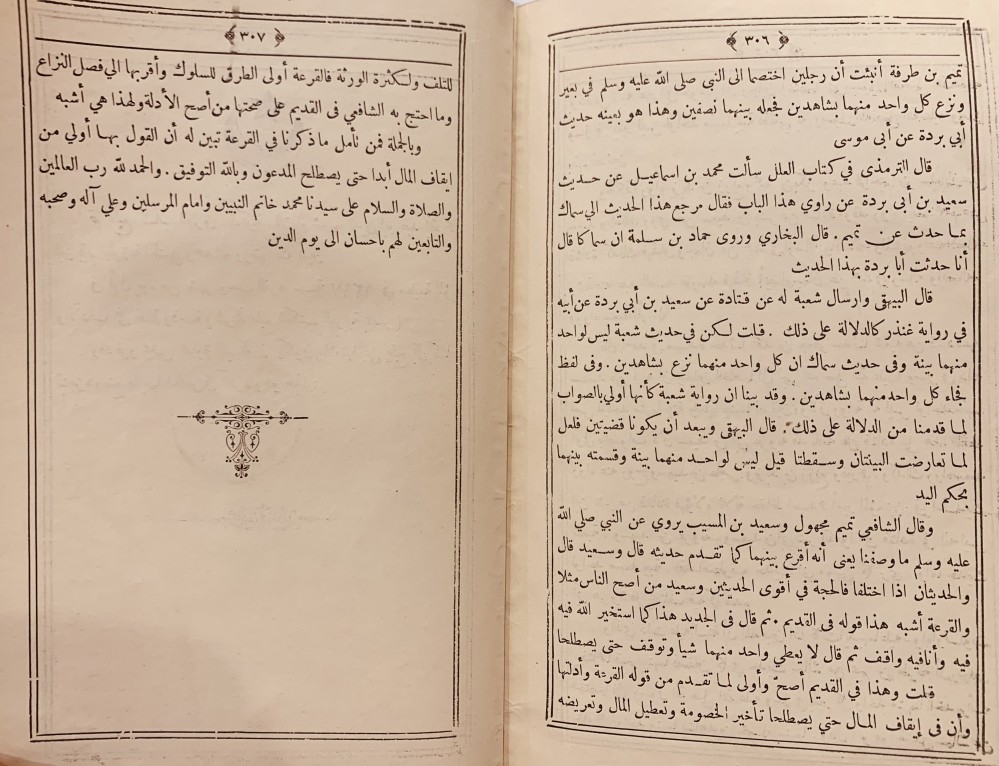 ﴿ ٣٠٦ ﴾
تميم بن طرفة أنبئت أن رجلين اختصما الى النبي صلى الله عليه وسلم في بعير
ونزع كل واحد منهما بشاهدين فجعله بينهما نصفين وهذا هو بعينه حديث
أبي بردة عن أبى موسى
قال الترمذى في كتاب العلل سألت محمد بن اسماعيل عن حديث
سعيد بن أبى بردة عن راوي هذا الباب فقال مرجع هذا الحديث الي سماك
بما حدث عن تميم . قال البخاري وروى حماد بن سلمة ان سماكا قال
أنا حدثت أبا بردة بهذا الحديث
قال البيهقى وارسال شعبة له عن قتادة عن سعيد بن أبي بردة عن أبيه
في رواية غندر كالدلالة على ذلك . قلت لكن في حديث شعبة ليس لواحد
منهما بينة وفى حديث سماك ان كل واحد منهما نزع بشاهدين . وفى لفظ
فجاء كل واحد منهما بشاهدين . وقد بينا ان رواية شعبة كأنها أولي بالصواب
لما قدمنا من الدلالة على ذلك . قال البيهقى ويبعد أن يكونا قضيتين فلعل
لما تعارضت البينتان وسقطتا قيل ليس لواحد منهما بينة وقسمته بينهما
بحكم اليد
وقال الشافعي تميم مجهول وسعيد بن المسيب يروي عن النبي صلي الله
عليه وسلم ما وصفنا يعنى أنه أقرع بينهما كما تقدم حديثه قال وسعيد قال
والحديثان اذا اختلفا فالحجة في أقوى الحديثين وسعيد من أصح الناس مثلا
والقرعة أشبه هذا قوله فى القديم . ثم قال فى الجديد هذا كما استخير الله فيه
فيه وأنا فيه واقف ثم قال لا يعطي واحد منهما شيأ وتوقف حتى يصطلحا
قلت وهذا في القديم أصحّ وأولى لما تقدم من قوله القرعة وأدلتها
وأن فى إيقاف المال حتي يصطلحا تأخير الخصومة وتعطيل المال وتعريضه
﴿ ٣٠٧ ﴾
للتلف ولكثرة الورثة فالقرعة أولى الطرق للسلوك وأقربها الي فصل النزاع
وما احتج به الشافعي فى القديم على صحتها من أصح الأدلة ولهذا هي أشبه
وبالجملة فمن تأمل ما ذكرنا في القرعة تبين له أن القول بها أولي من
إيقاف المال أبدا حتى يصطلح المدعون وبالله التوفيق . والحمد لله رب العالمين
والصلاة والسلام على سيدنا محمد خاتم النبيين وامام المرسلين وعلي آله وصحبه
والتابعين لهم باحسان الى يوم الدين